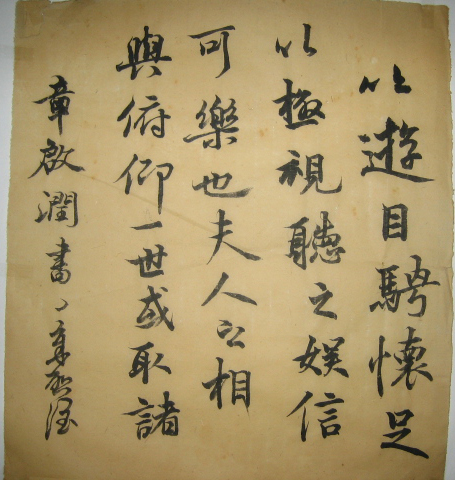 以遊目騁懷足
以極視聽之娛信
可樂也夫人之相
與俯仰一世或取諸
章啟潤書